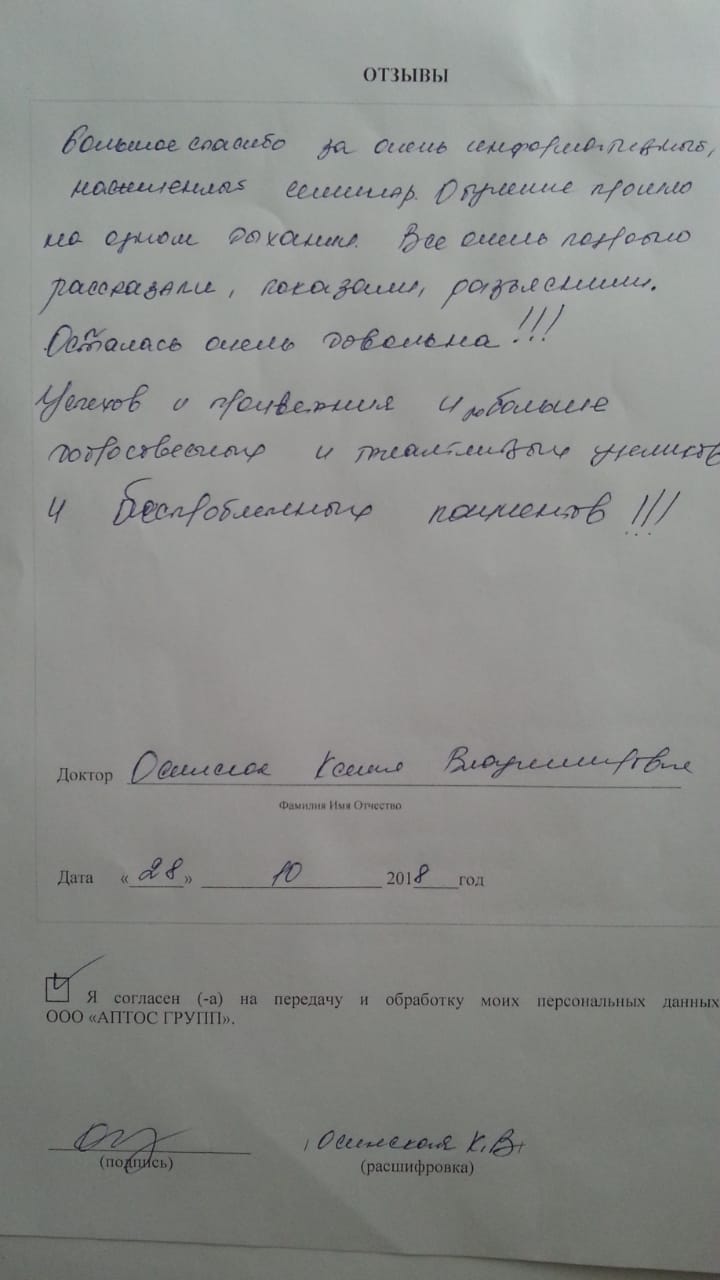 ОТЗЫВЫ
Большое спасибо за очень информативный,
насыщенный семинар. Обучение прошло
на одном дыхании. Все очень подробно
рассказали, показали, разъяснили.
Осталась очень довольна!!!
Успехов и процветания и побольше
и талантливых учеников
и беспроблемных пациентов!!!
Доктор Осинская Ксения Владимировна
Фамилия Имя Отчество
Дата «28» 10 2018 год
Я согласен (-а) на передачу и обработку моих персональных данных
ООО «АПТОС ГРУПП».
(подпись)
Осинская К.В.
(расшифровка)